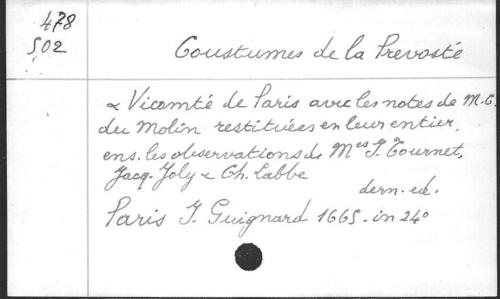 478
502
Coustumes de la Prevosté
& Vicomté de Paris avec les notes de M.C.
du Molin restituées en leur entier,
ens. les observations de Mes J. Tournet,
Jacq. Joly & Ch. Labbe
dern. ed.
Paris J. Guignard 1665 - in 24°